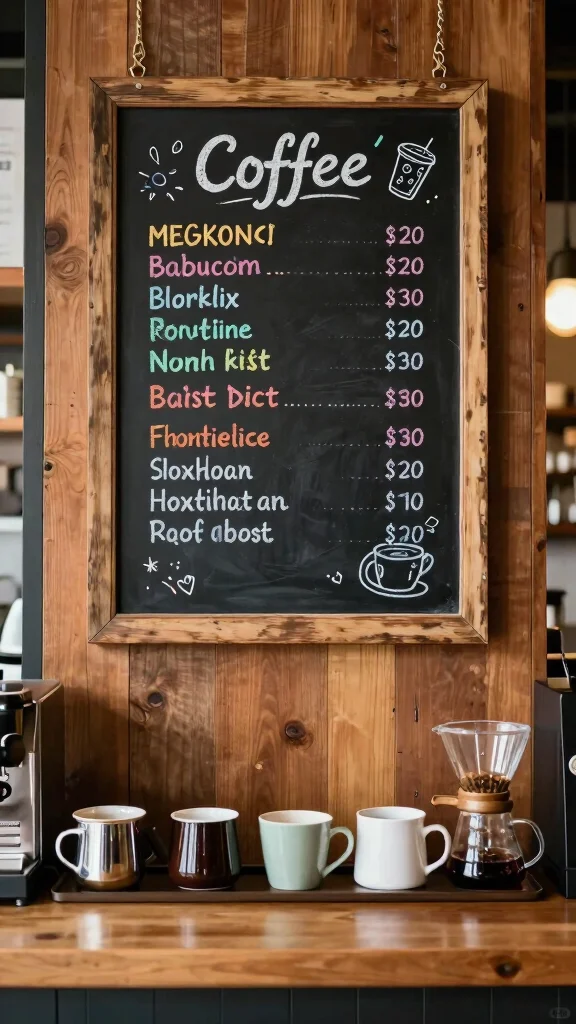 Coffee
MEGKONCI ........ $20
Babucom ........ $20
Blorklix $30
Rorutline $20
Nonh kist $30
Baist Dict ........ $30
Fhontielice $30
SloxHoan $20
Hoxtihat an $10
Raof abost $20